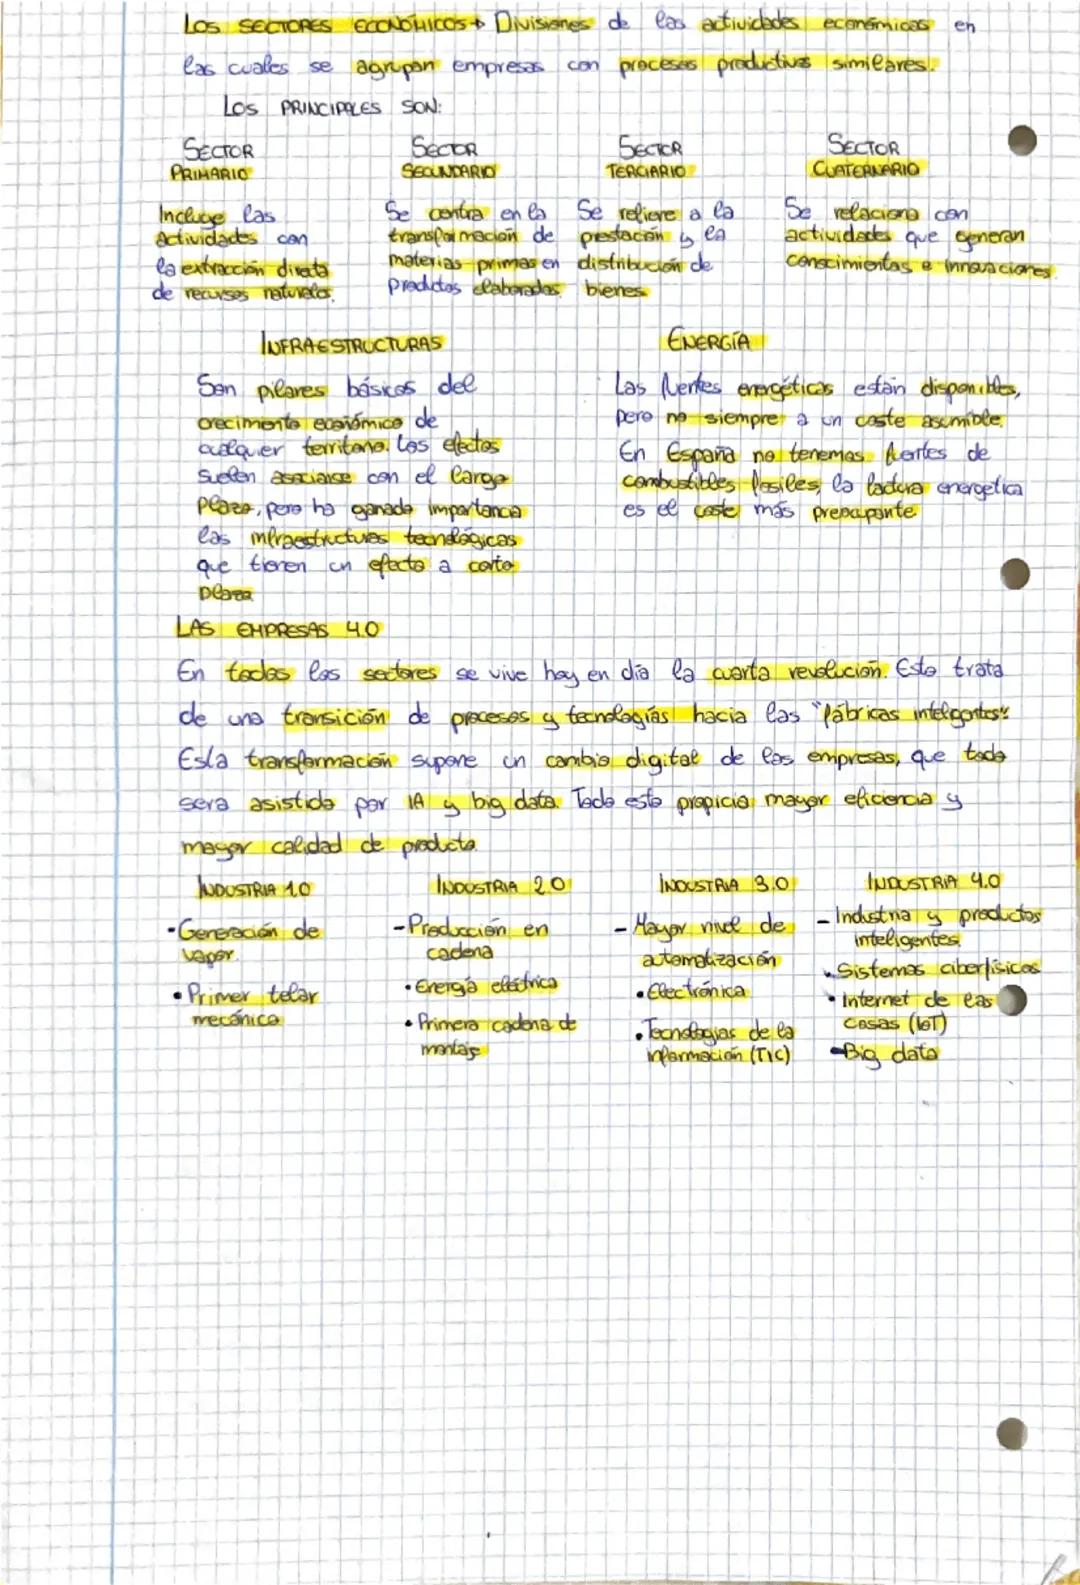 LOS SECTORES ECONÓMICOS → Divisiones de las actividades económicas en
las cuales se agrupan empresas con procesos productivos similares.
LOS PRINCIPALES SON:
SECTOR
PRIMARIO
Incluye las
actividades con
la extracción directa
de recursos naturales.
SECTOR
SECUNDARIO
Se centra en la
transformación de
materias primas en
productos elaborados.
SECTOR
TERCIARIO
Se refiere a la
prestación y la
distribución de
bienes
SECTOR
CUATERNARIO
Se relaciona con
actividades que generan
conocimientos e innovaciones.
INFRAESTRUCTURAS
Son pilares básicos del
crecimiento económico de
cualquier territorio. Los efectos
suelen asociarse con el largo
plazo, pero ha ganado importancia
las infraestructuras tecnológicas
que tienen un efecto a corto
plazo
ENERGÍA
Las fuentes energéticas están disponibles,
pero no siempre a un coste asumible.
En España no tenemos fuentes de
combustibles fósiles, la factura energética
es el coste más preocupante
LAS EMPRESAS 4.0
En todos los sectores se vive hoy en día la cuarta revolución. Esto trata
de una transición de procesos y tecnologías hacia las "fábricas inteligentes".
Esta transformación supone un cambio digital de las empresas, que todo
sera asistido por IA y big data. Todo esto propicia mayor eficiencia y
mayor calidad de producto.
INDUSTRIA 1.0
• Generación de
vapor.
• Primer telar
mecánico
INDUSTRIA 2.0
- Producción en
cadena
• Energía eléctrica
• Primera cadena de
montaje
INDUSTRIA 3.0
- Mayor nivel de
automatización
• Electrónica
• Tecnologías de la
información (TIC)
INDUSTRIA 4.0
- Industria y productos
inteligentes.
• Sistemas ciberfísicos
• Internet de las
cosas (IoT)
- Big data